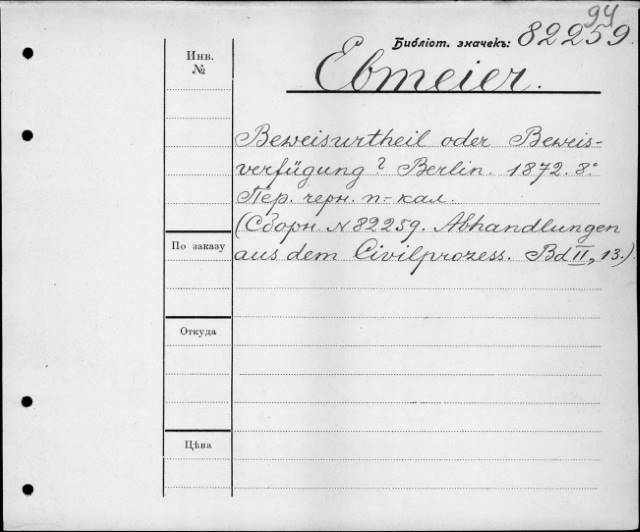 94
Библіот. значекъ: 82259.
Инв.
№
Ebmeier.
Beweisurtheil oder Beweis-
verfügung? Berlin. 1872. 8.°
Пер. черн. п-кал.
(Сборн. N 82259. Abhandlungen
По заказу
aus dem Civilprozess. Bd II, 13.)
Откуда
Цѣна